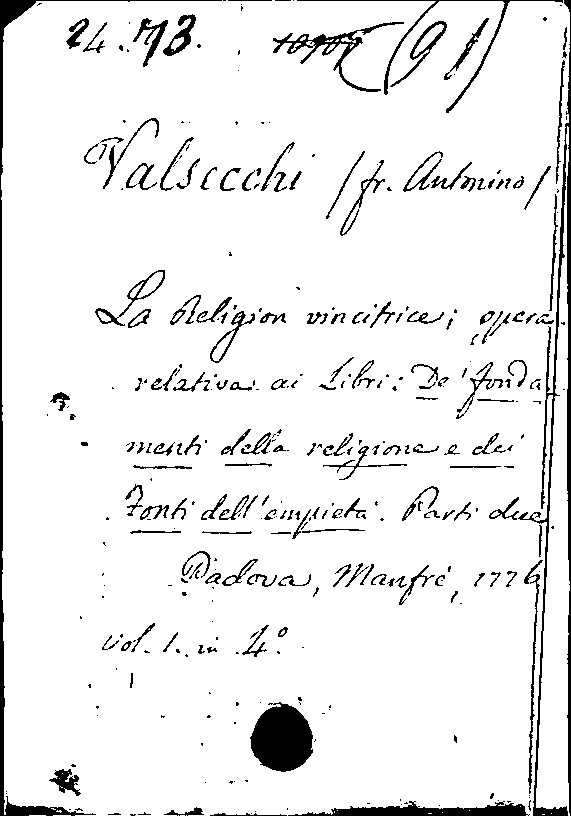 24. 73. (91)
Valsecchi (fr. Antonino)
La Religion vincitrice; opera
relativa ai Libri: De' fonda
menti della religione e dei
Fonti dell'empietà. Parti due
Padova, Manfrè, 1776
vol. 1. in 4º